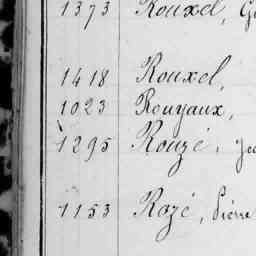 1373 Rouxel,
1418 Rouxel,
1023 Rouyaux,
1295 Rouzé,
1153 Rozé, Pierre